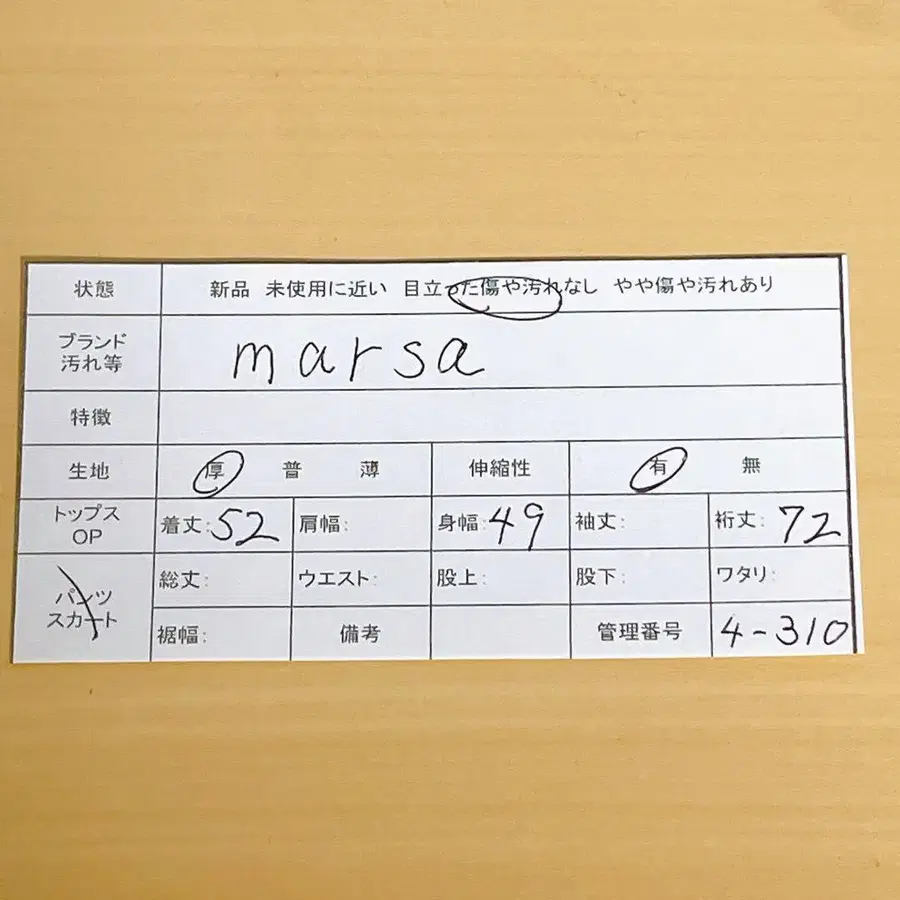 状態 新品 未使用に近い 目立った傷や汚れなし やや傷や汚れあり
ブランド
汚れ等
marsa
特徴
生地 厚 普 薄 伸縮性 有 無
トップス
OP
着丈:52 肩幅: 身幅:49 袖丈: 裄丈:72
パンツ
スカート
総丈: ウエスト: 股上: 股下: ワタリ:
裾幅: 備考 管理番号 4-310